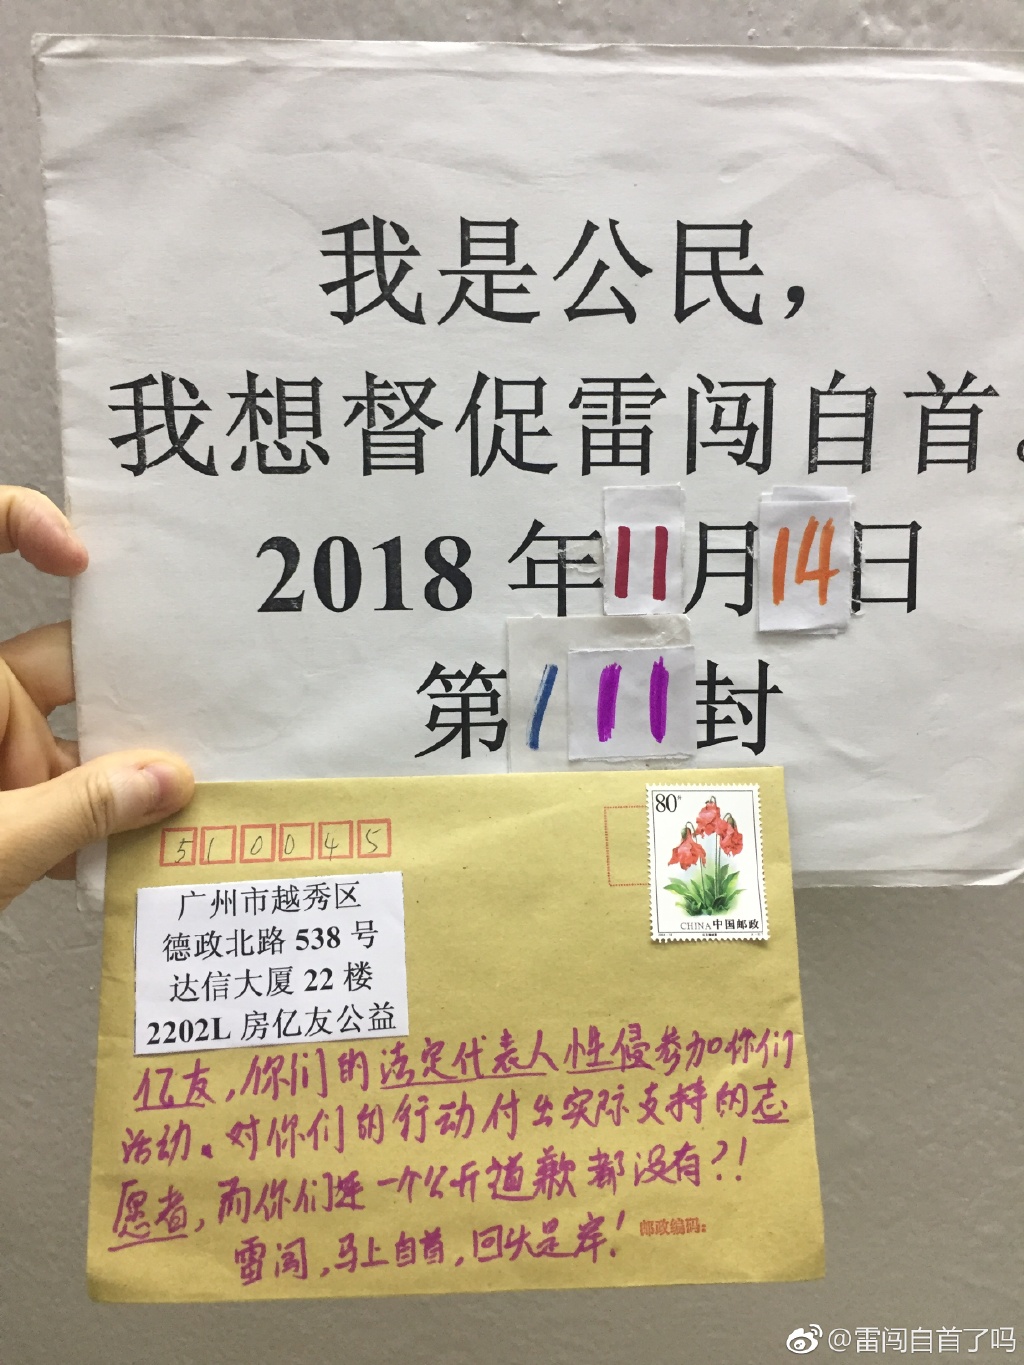 我是公民，
我想督促雷闯自首。
2018年11月14日
第111封
80分
CHINA 中国邮政
510045
广州市越秀区
德政北路 538 号
达信大厦 22 楼
2202L 房亿友公益
亿友，你们的法定代表人性侵参加你们
活动。对你们的行动付出实际支持的志
愿者，而你们连一个公开道歉都没有？！
雷闯，马上自首，回头是岸！
邮政编码：
@雷闯自首了吗